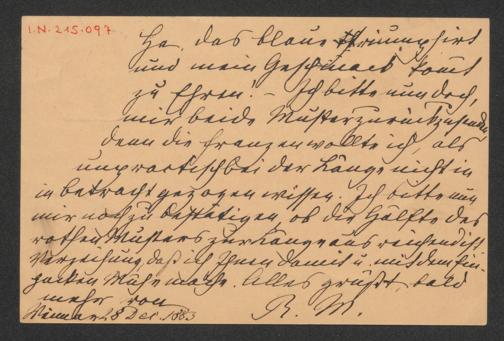 I.N. 215.097
Ha, das blaue triumphirt
und mein Geschmack komt
zu Ehren! – Ich bitte nun doch,
mir beide Muster zurückzusenden
denn die Franzen wollte ich als
unpractisch bei der Länge nicht in
in betracht gezogen wissen. Ich bitte nun
mir noch zu bestätigen, ob die Hälfte des
rothen Musters zur Länge ausreichend ist
Verzeihung daß ich Ihnen damit u. mit dem Ein-
packen Mühe mache. Alles grüßt, bald
mehr von
R. M.
Weimar 28 Dec. 1883